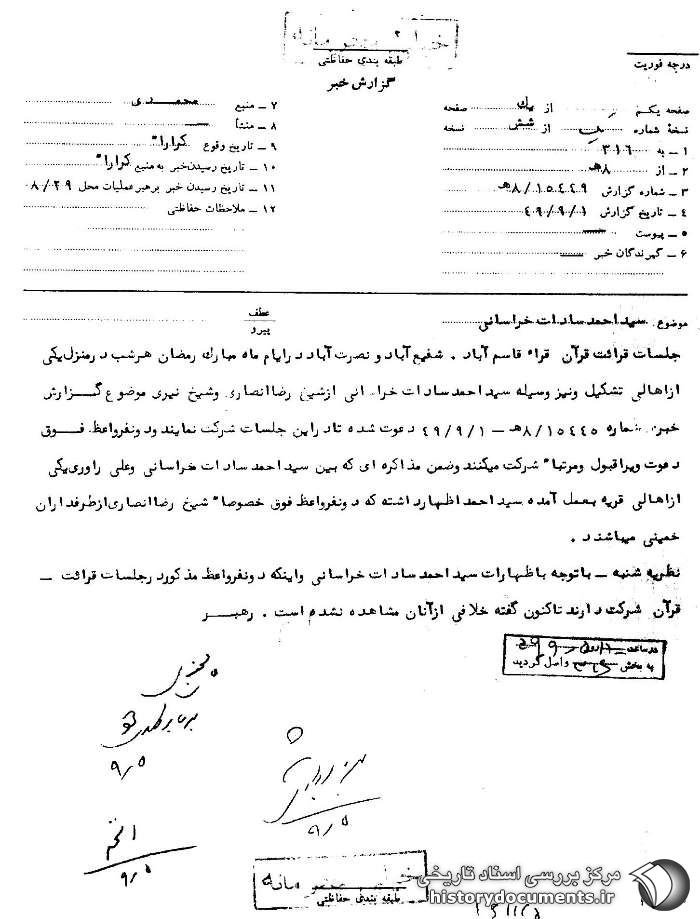 طبقه بندی حفاظتی
گزارش خبر
درجه فوریت
صفحه یکم از یك صفحه
نسخهٔ شماره از شش نسخه
۱ – به ۳۱۶
۲ – از ۸هـ
۳ – شماره گزارش ۸/۱۵۴۴۹هـ
۴ – تاریخ گزارش ۴۹/۹/۱
۵ – پیوست
۶ – گیرندگان خبر
۷ – منبع محمدی
۸ – منشأ
۹ – تاریخ وقوع کرارا"
۱۰ – تاریخ رسیدن خبر به منبع کرارا"
۱۱ – تاریخ رسیدن خبر برهبر عملیات محل ۰۸/۲۹
۱۲ – ملاحظات حفاظتی
موضوع سید احمد سادات خراسانی
عطف
پیرو
جلسات قرائت قرآن قراء قاسم آباد . شفیع آباد و نصرت آباد در ایام ماه مبارك رمضان هر شب در منزل یکی
از اهالی تشکیل ونیز وسیله سید احمد سادات خراسانی از شیخ رضا انصاری وشیخ نیری موضوع گزارش
خبر شماره ۸/۱۵۴۴۵هـ – ۴۹/۹/۱ دعوت شده تا در این جلسات شرکت نمایند ودونفر واعظ فوق
دعوت ویرا قبول ومرتبا" شرکت میکنند وضمن مذاکره ای که بین سید احمد سادات خراسانی وعلی راوری یکی
از اهالی قریه بعمل آمده سید احمد اظهار داشته که دونفر واعظ فوق خصوصا" شیخ رضا انصاری از طرفداران
خمینی میباشند .
نظریه شنبه – باتوجه باظهارات سید احمد سادات خراسانی واینکه دونفر واعظ مذکور در جلسات قرائت –
قرآن شرکت دارند تاکنون گفته خلافی از آنان مشاهده نشده است . رهبر
در ساعت
به بخش واصل گردید
۹/۵
۹/۵
۹/۵
طبقه بندی حفاظتی
مرکز بررسی اسناد تاریخی
historydocuments.ir